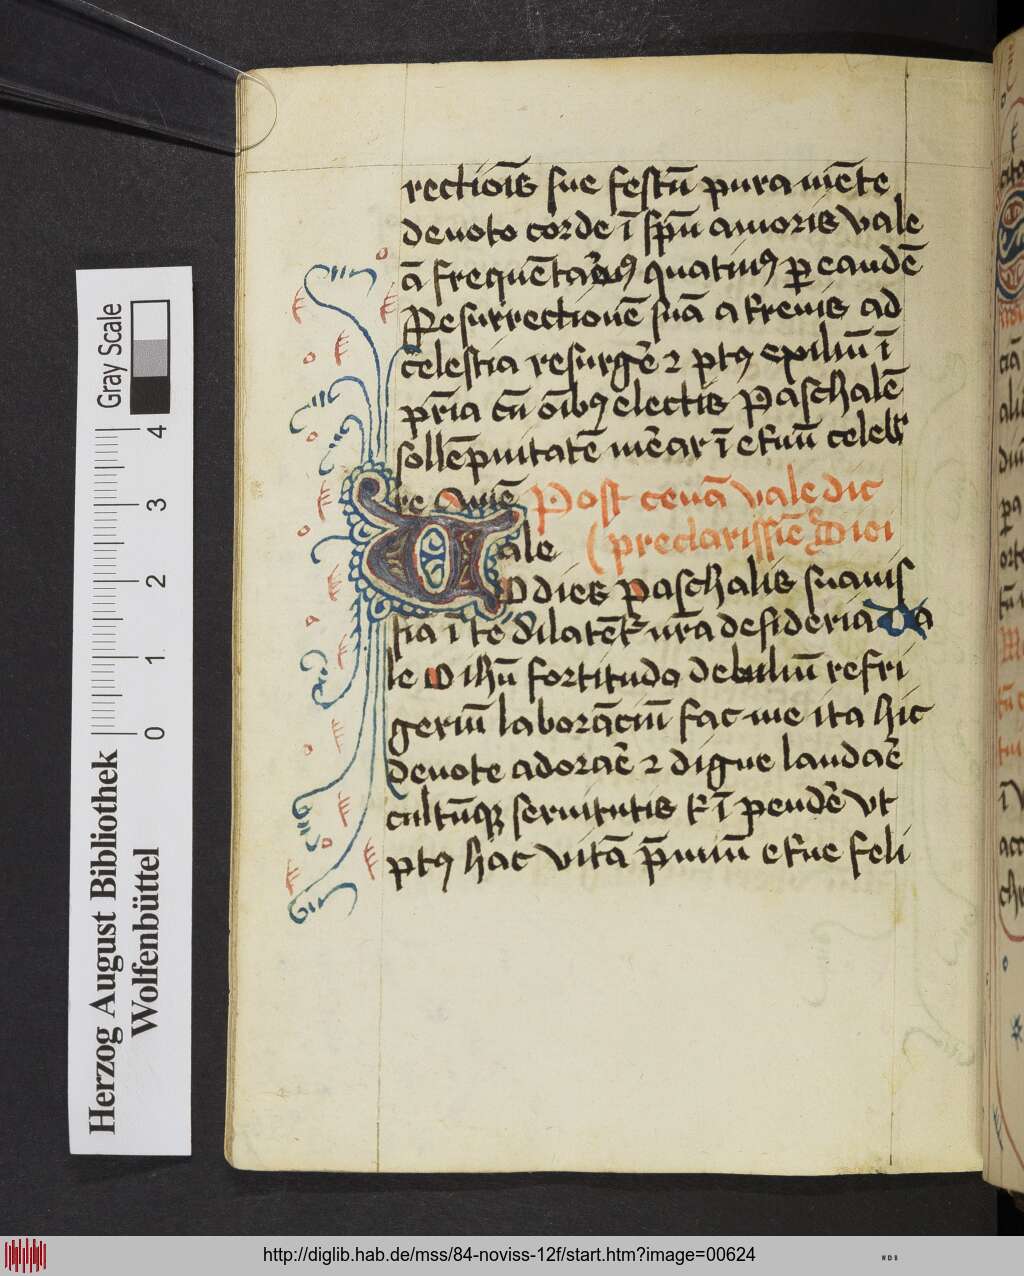 rectiōis sue festū pura mēte
deuoto corde ī spū amoris vale
ā frequētaꝰ quatinꝰ ꝑ eandē
Resurrectionē suā a t̄renis ad
celestia resurgē̉ ⁊ ptꝰ exiliū ī
pr̄ia cū oībꝰ electis Paschalē
sollēpnitatē me̅ar ī et̄nū celebr
re Amē Post cenā vale dic
ale (preclarissiē Diei
O dies paschalis suauis
sia ī te dilatēt̉ nr̄a desideria Va
le O ihū fortitudo debiliū refri
geriū laborāciū fac me ita hic
deuote adorarē ⁊ digne laudarē
cultūqꝫ seruitutis t̉ īpendē̉ vt
ptꝰ hac vitā p̄miū et̄ne feli
Gray Scale
4
3
2
1
0
Herzog August Bibliothek
Wolfenbüttel
http://diglib.hab.de/mss/84-noviss-12f/start.htm?image=00624